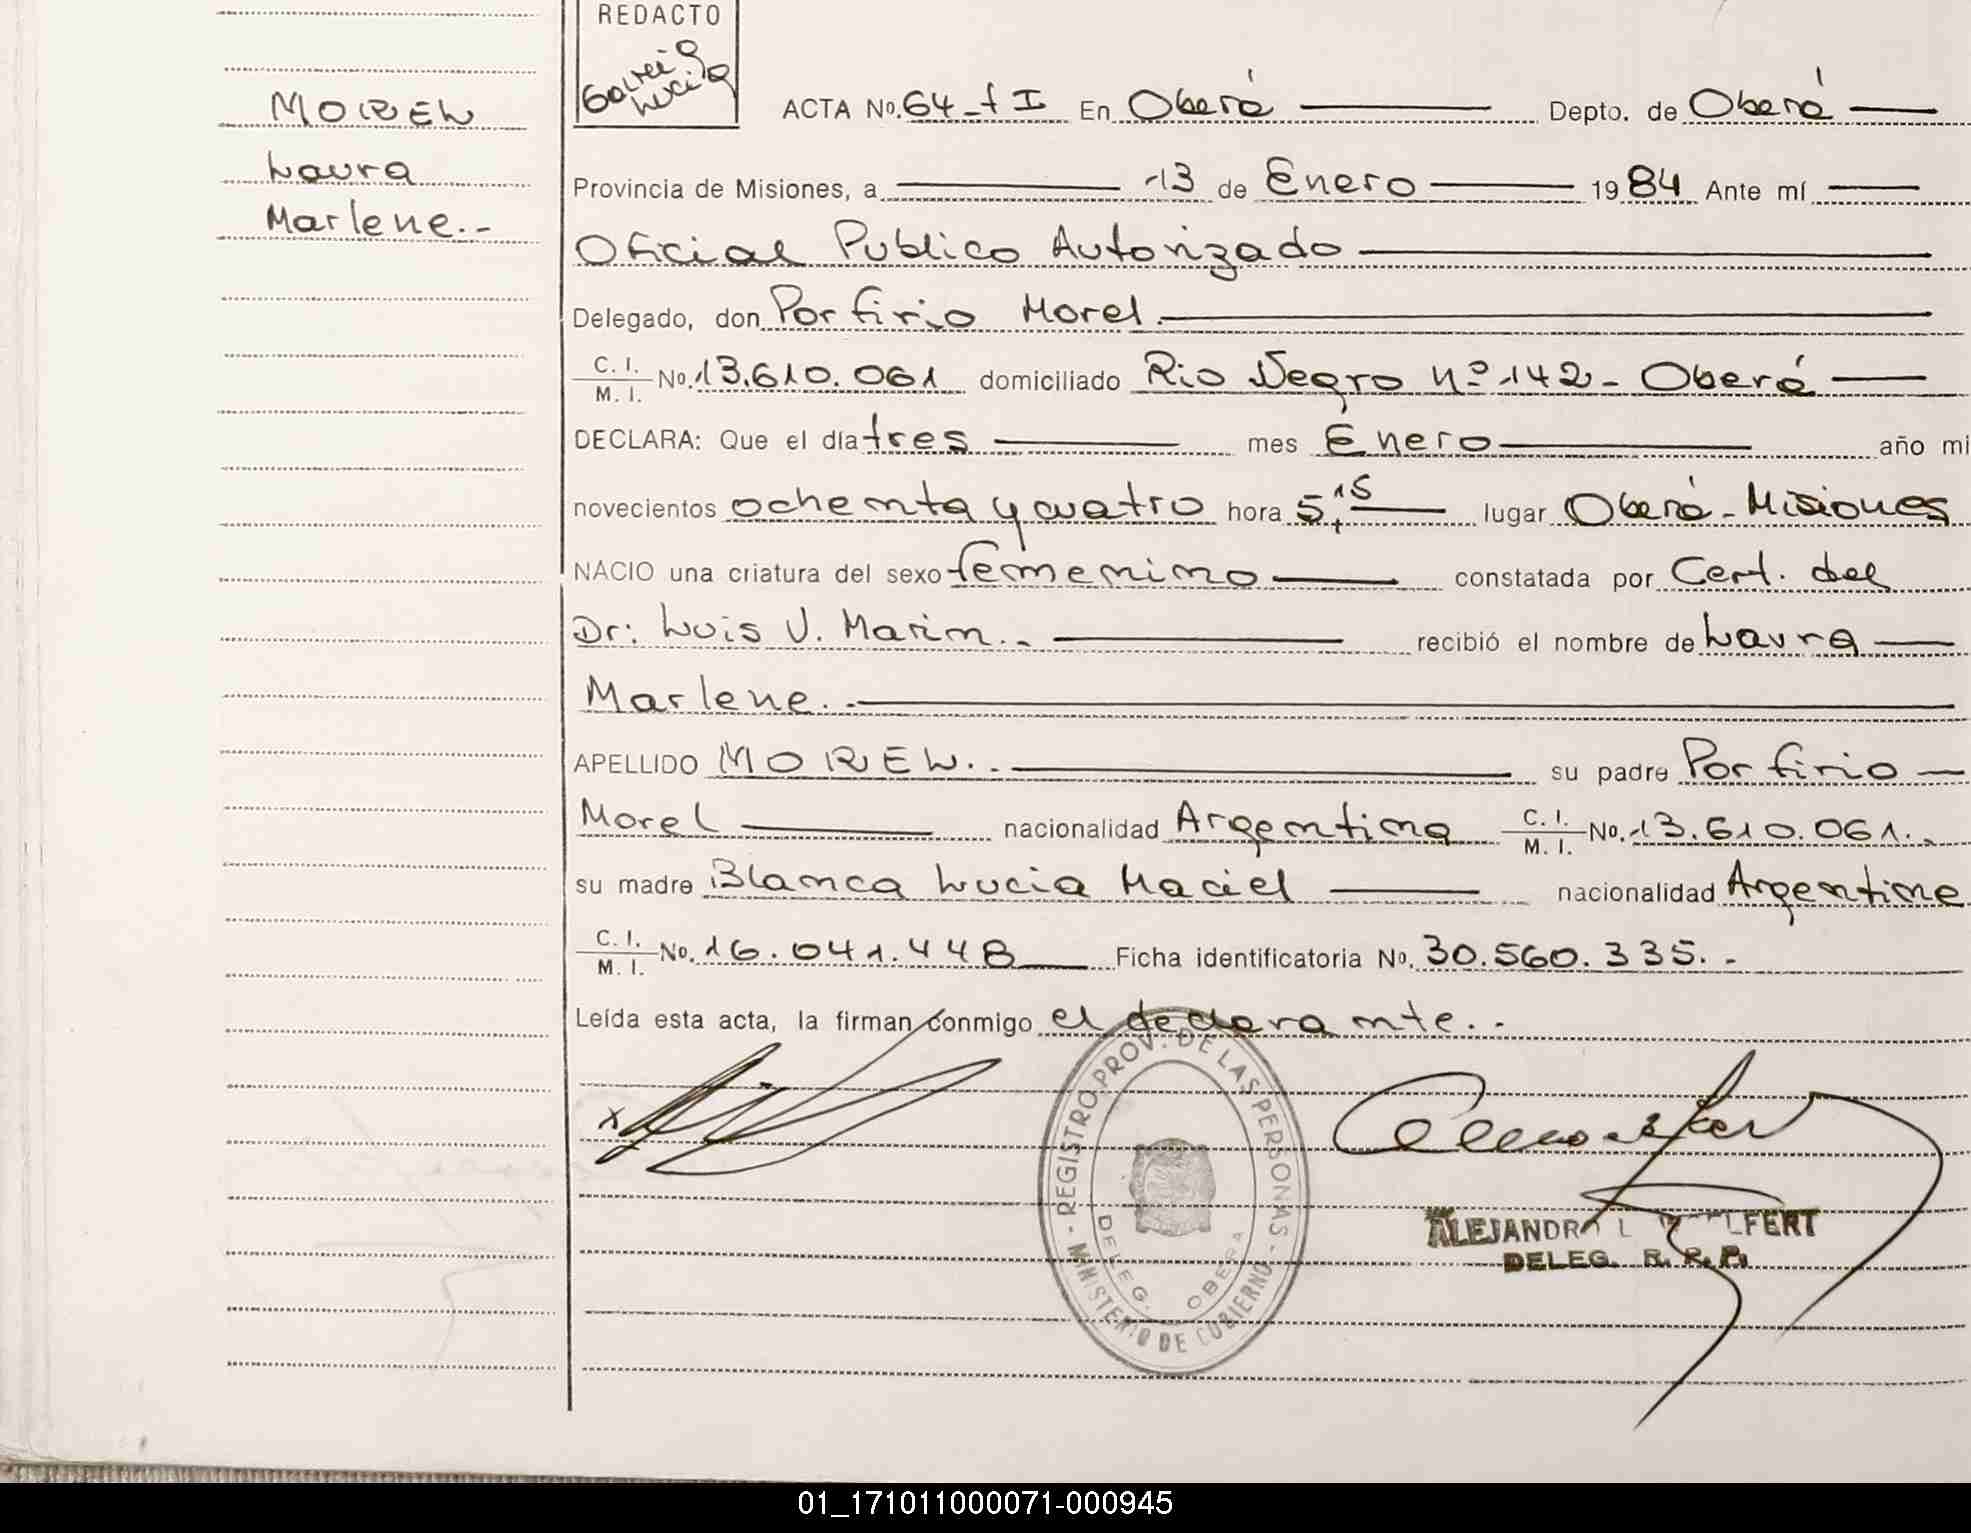 REDACTO
MOREL
Laura
Marlene.-
ACTA No. 64-tI En Oberá Depto. de Oberá
Provincia de Misiones, a 13 de Enero 1984 Ante mí
Oficial Publico Autorizado
Delegado, don Porfirio Morel.
C. I.
M. I. No. 13.610.061 domiciliado Rio Negro nº 142 - Oberá
DECLARA: Que el día tres mes Enero año mi
novecientos ochenta y cuatro hora 5,15 lugar Oberá - Misiones
NACIO una criatura del sexo femenino constatada por Cert. del
Dr: Luis V. Marin.- recibió el nombre de Laura
Marlene.-
APELLIDO MOREL.- su padre Porfirio
Morel nacionalidad Argentina C. I.
M. I. No. 13.610.061.-
su madre Blanca Lucia Maciel nacionalidad Argentina
C. I.
M. I. No. 16.041.448 Ficha identificatoria No. 30.560.335.-
Leída esta acta, la firman conmigo el declarante.-
REGISTRO PROV. DE LAS PERSONAS - MINISTERIO DE GOBIERNO -
DELEG. OBERA
ALEJANDRO L
DELEG. R. R. P.
01_171011000071-000945